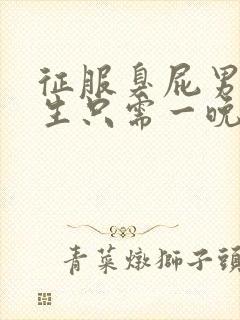 征服臭屁男
生只需一晚
青菜燉獅子頭